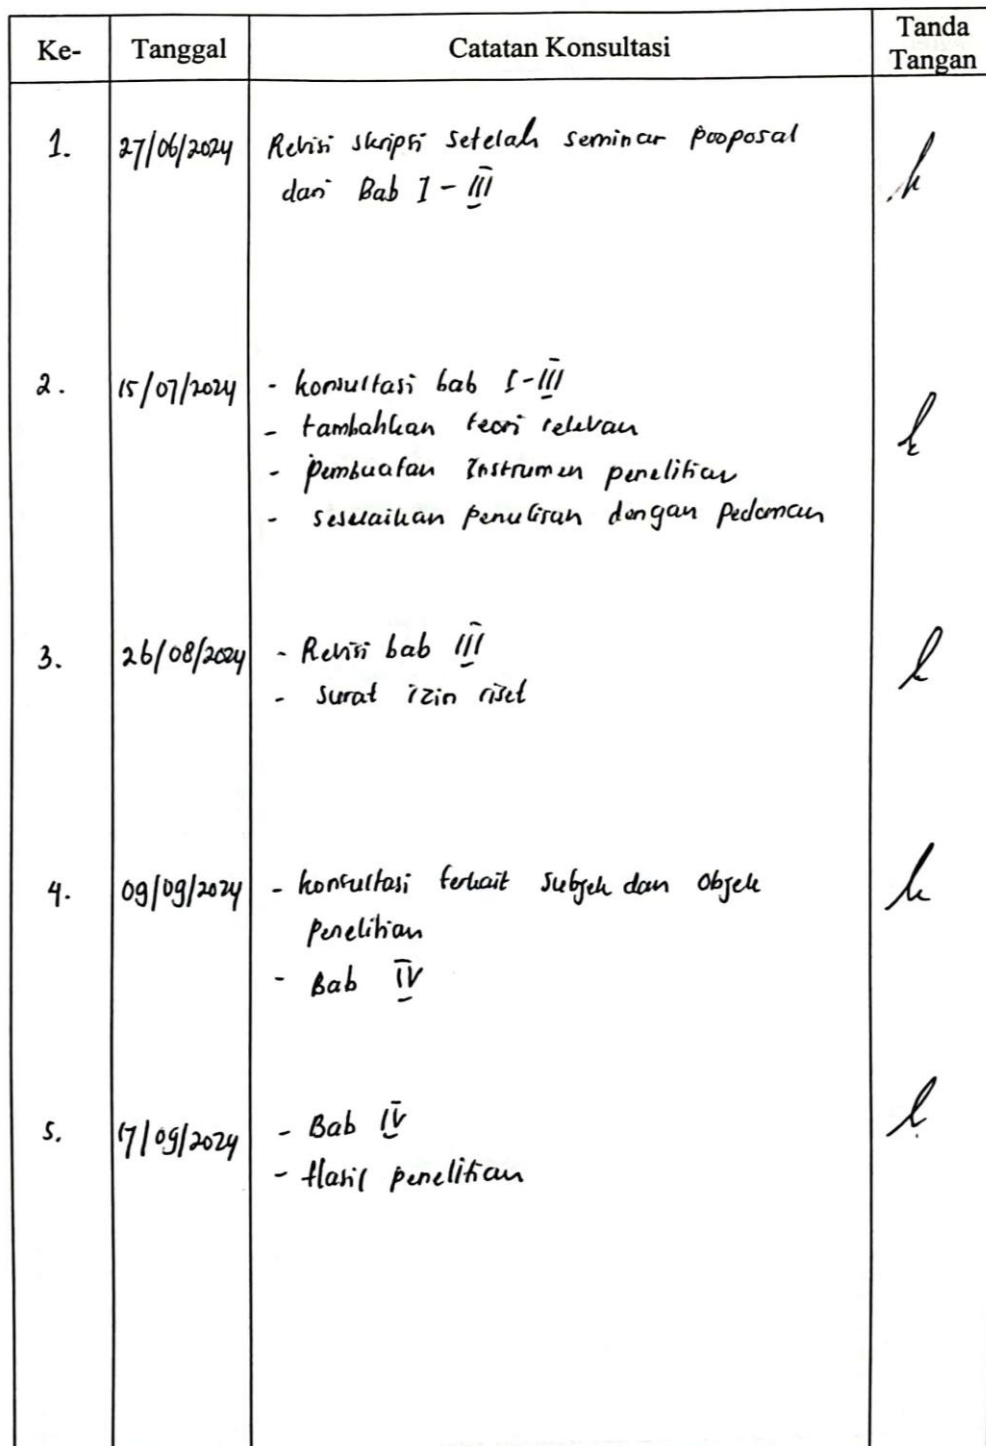 Ke- Tanggal Catatan Konsultasi Tanda Tangan
1. 27/06/2024 Revisi skripsi setelah seminar proposal
dari Bab I - III
2. 15/07/2024 - konsultasi bab I-III
- tambahkan teori relevan
- pembuatan Instrumen penelitian
- sesuaikan penulisan dengan pedoman
3. 26/08/2024 - Revisi bab III
- surat izin riset
4. 09/09/2024 - konsultasi terkait subjek dan objek
penelitian
- Bab IV
5. 17/09/2024 - Bab IV
- Hasil penelitian